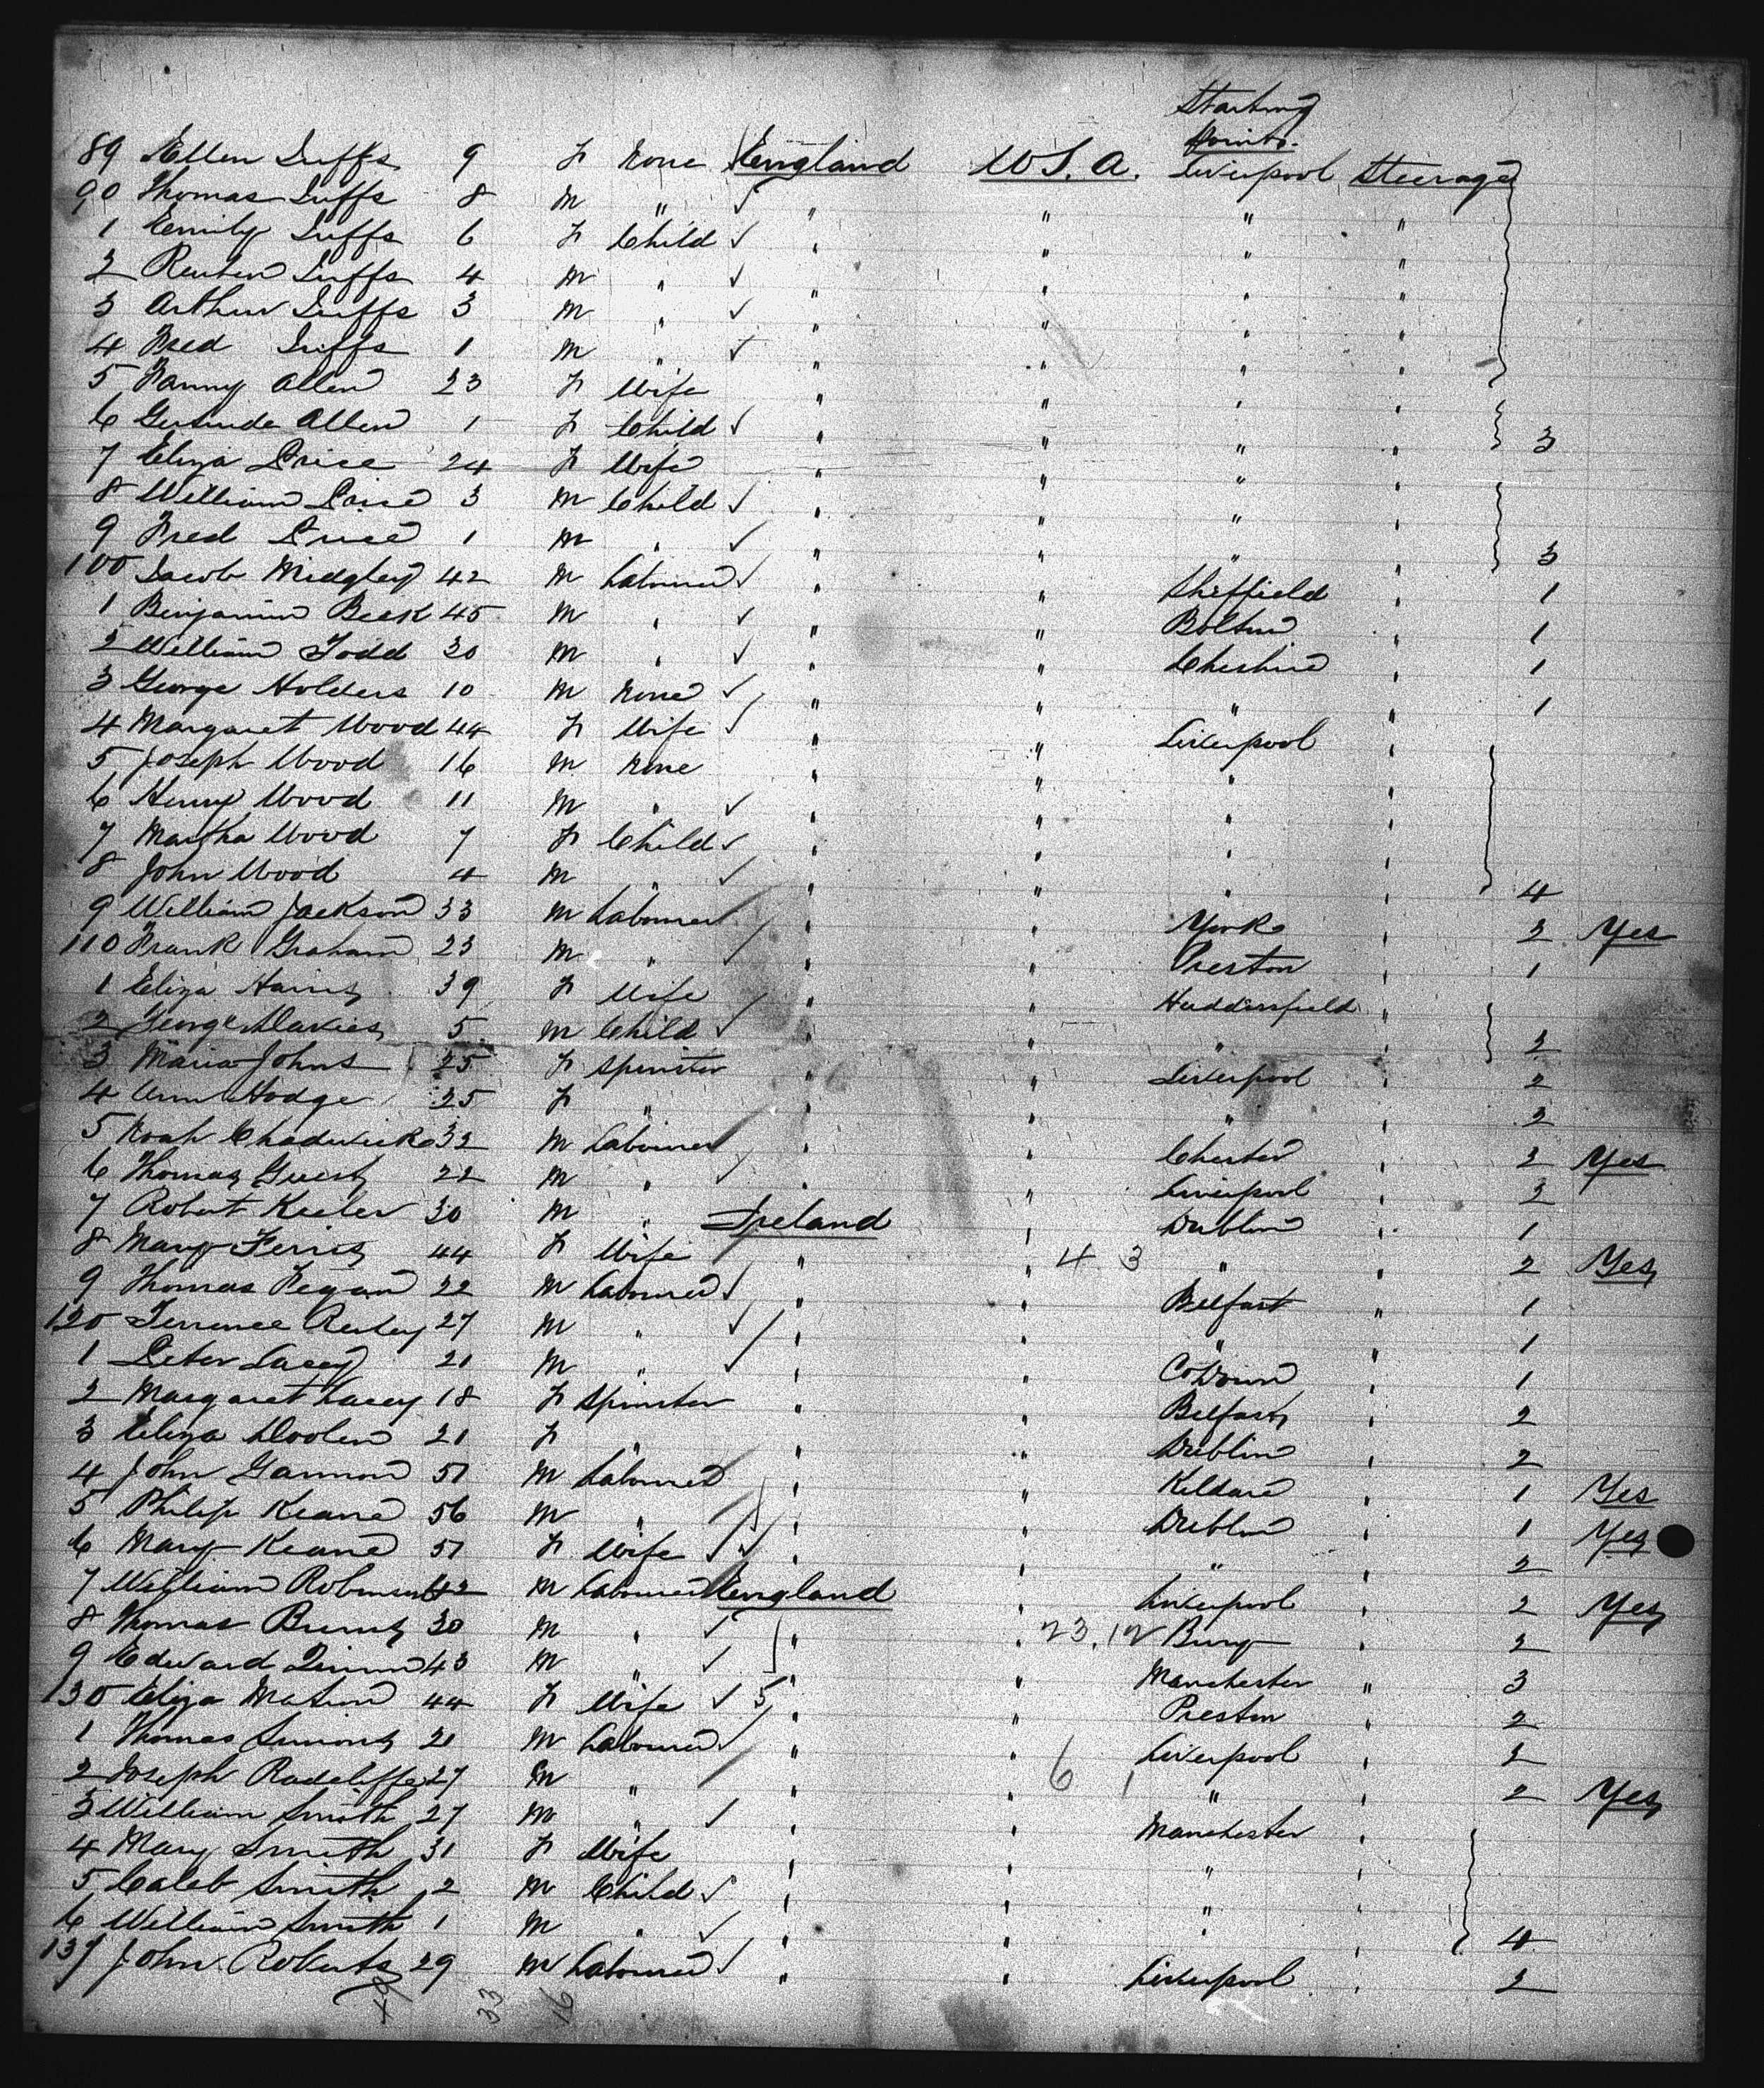 Starting
Points.
89 Ellen Suffs 9 F None England U S. A. Liverpool Steerage
90 Thomas Suffs 8 M " ✓ " " " "
1 Emily Suffs 6 F Child ✓ " " " "
2 Reuben Suffs 4 M " ✓ " " " "
3 Arthur Suffs 3 M " ✓ " " " "
4 Fred Suffs 1 M " ✓ " " " "
5 Fanny Allen 23 F Wife " " " "
6 Gertrude Allen 1 F Child ✓ " " " " 3
7 Eliza Price 24 F Wife " " " "
8 William Price 3 M Child ✓ " " " "
9 Fred Price 1 M " ✓ " " " " 3
100 Jacob Midgley 42 M Labourer ✓ " " Sheffield " 1
1 Benjamin Beek 45 M " ✓ " " Bolton " 1
2 William Todd 30 M " ✓ " " Cheshire " 1
3 George Holders 10 M None ✓ " " " " 1
4 Margaret Wood 44 F Wife ✓ " " Liverpool "
5 Joseph Wood 16 M None " " " "
6 Henry Wood 11 M " ✓ " " " "
7 Martha Wood 7 F Child ✓ " " " "
8 John Wood 4 M " ✓ " " " " 4
9 William Jackson 33 M Labourer " " York " 2 Yes
110 Frank Graham 23 M " " " Preston " 1
1 Eliza Harris 39 F Wife " " Huddersfield "
2 George Davies 5 M Child ✓ " " " " 2
3 Maria Johns 25 F Spinster " " Liverpool " 2
4 Ann Hodge 25 F " " " " " 2
5 Noah Chadwick 32 M Labourer " " Chester " 2 Yes
6 Thomas Guest 22 M " ✓ " " Liverpool " 2
7 Robert Keeler 30 M " Ireland " Dublin " 1
8 Mary Ferris 44 F Wife " " 4 3 " " 2 Yes
9 Thomas Fegan 22 M Labourer ✓ " " Belfast " 1
120 Terrence Reiley 27 M " ✓ " " " " 1
1 Peter Lacey 21 M " ✓ " " Co Down " 1
2 Margaret Lacey 18 F Spinster " " Belfast " 2
3 Eliza Doolen 21 F " " " Dublin " 2
4 John Gannon 51 M Labourer " " Kildare " 1 Yes
5 Philip Keane 56 M " " " Dublin " 1 Yes
6 Mary Keane 51 F Wife ✓ " " " " 2
7 William Robinson 42 M Labourer England " Liverpool " 2 Yes
8 Thomas Burns 30 M " ✓ " " 23.12 Bury " 2
9 Edward Quinn 43 M " ✓ " " Manchester " 3
130 Eliza 44 F Wife ✓ 5 " " Preston " 2
1 Thomas Simons 21 M Labourer ✓ " " Liverpool " 2
2 Joseph Radcliffe 27 M " " " 6 1 " " 2 Yes
3 William Smith 27 M " ✓ " " Manchester "
4 Mary Smith 31 F Wife " " " "
5 Caleb Smith 2 M Child ✓ " " " "
6 William Smith 1 M " ✓ " " " " 4
137 John Roberts 29 M Labourer ✓ " " Liverpool " 2
49 33 16